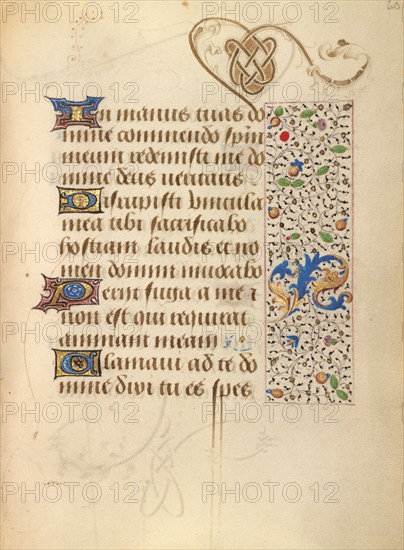 60
In manus tuas do
mine commendo spm
meum redemisti me do
mine deus ueritatis
Disrupisti vincula
mea tibi sacrificabo
hostiam laudis et no
men domini inuocabo
Periit fuga a me
non est qui requirat
animam meam
Clamaui ad te do
mine dixi tu es spes
PHOTO 12